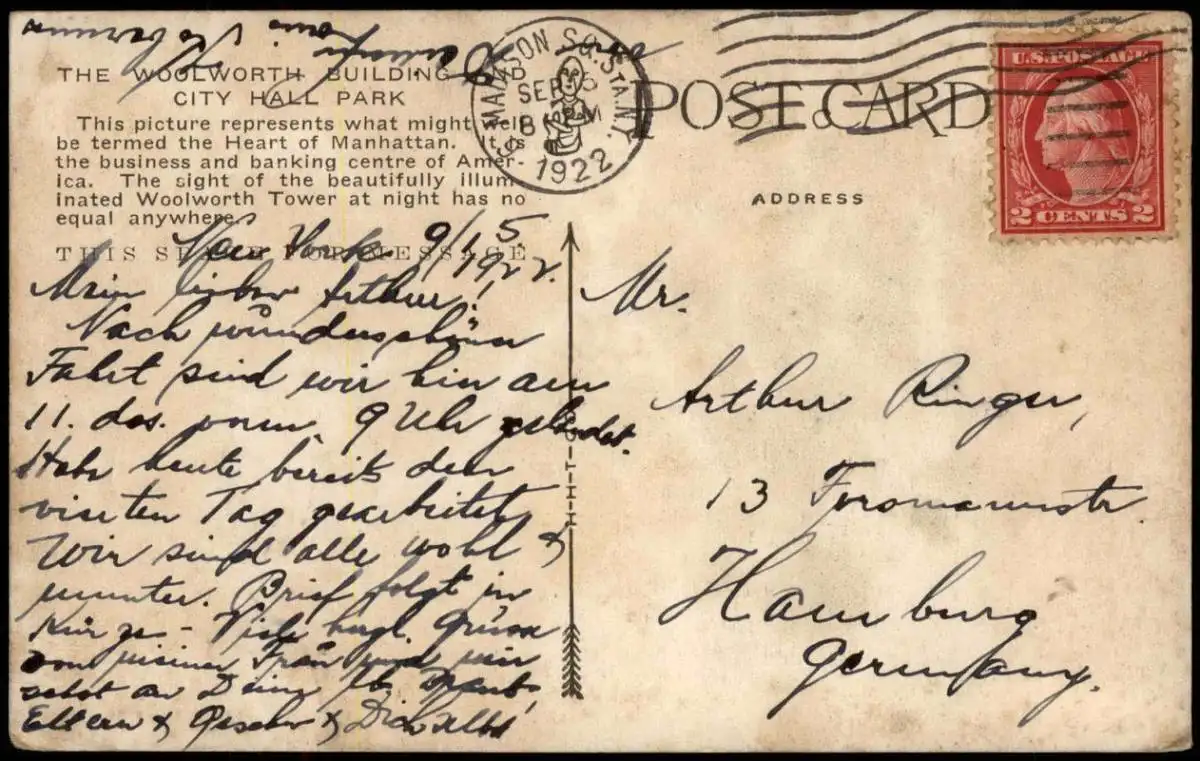 THE WOOLWORTH BUILDING AND
CITY HALL PARK
This picture represents what might well
be termed the Heart of Manhattan. It is
the business and banking centre of Amer-
ica. The sight of the beautifully illum-
inated Woolworth Tower at night has no
equal anywhere.
THIS SPACE FOR MESSAGE
MADISON SQ. STA. N.Y.
SEP
1922
POST CARD
ADDRESS
U.S. POSTAGE
2 CENTS 2
New York 9/15.
1922.
Mein lieber Arthur!
Nach wunderschöner
Fahrt sind wir hier am
11. des. vorm. 9 Uhr gelandet.
Habe heute bereits den
vierten Tag gearbeitet
Wir sind alle wohl &
munter. Brief folgt in
Kürze - Viele herzl. Grüsse
von meiner Frau und mir
selbst an Deine lb.
Eltern & Geschw & Dich selbst
Mr.
Arthur Ringer,
13
Hamburg
Germany.